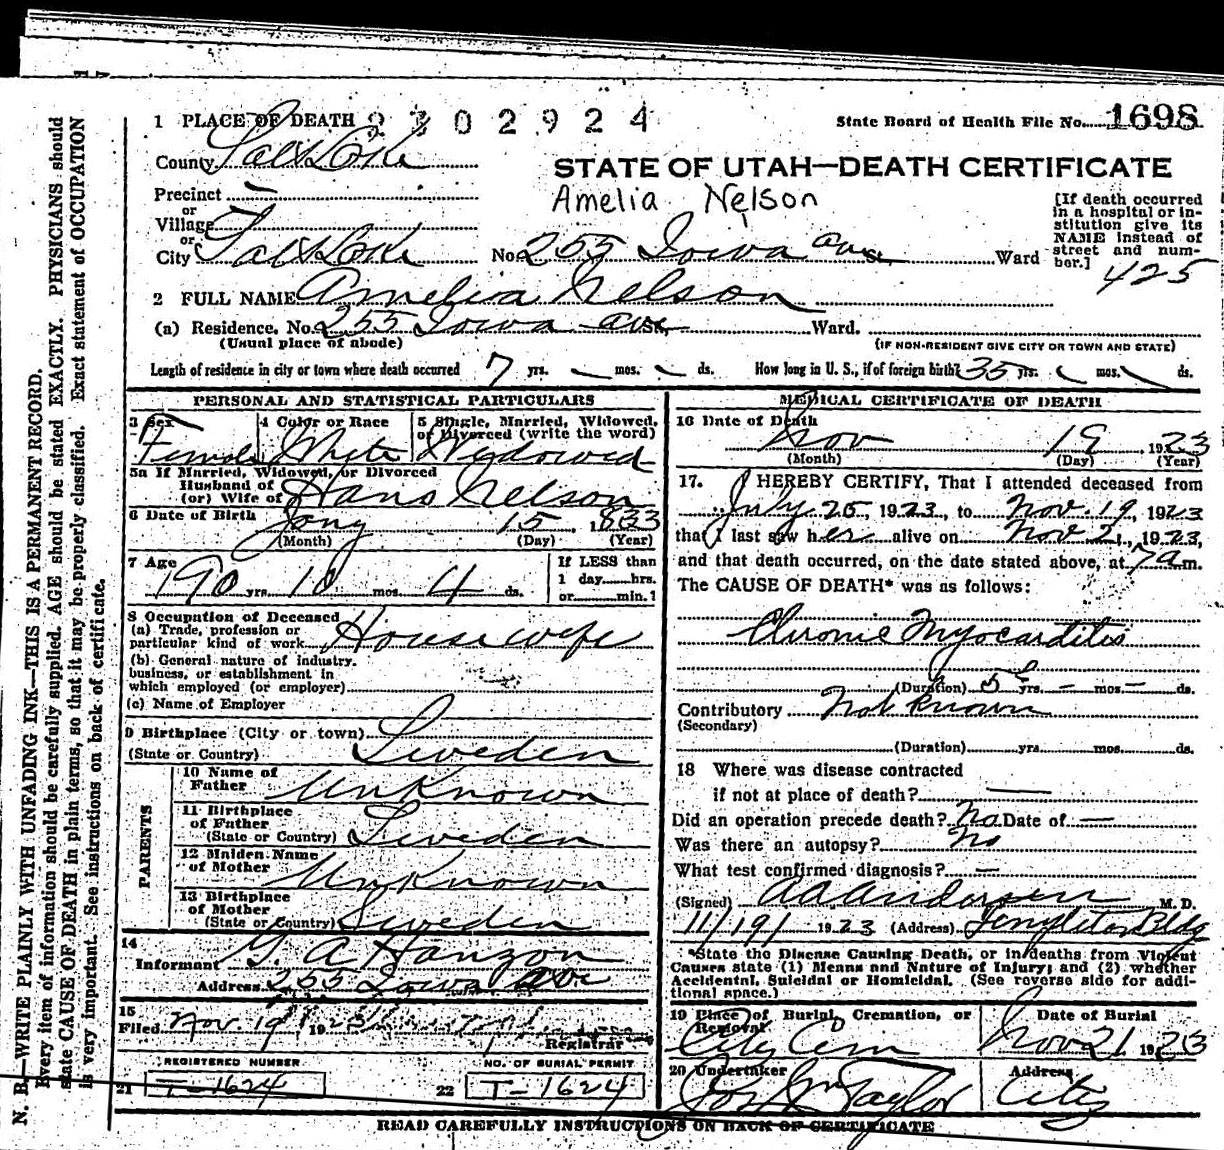 1 PLACE OF DEATH 2302924
State Board of Health File No. 1698
County Salt Lake
STATE OF UTAH—DEATH CERTIFICATE
Amelia Nelson
Precinct —
or
Village —
or
City Salt Lake No. 255 Iowa ave St. Ward
[If death occurred
in a hospital or in-
stitution give its
NAME instead of
street and num-
ber.]
425
2 FULL NAME Amelia Nelson
(a) Residence. No. 255 Iowa ave St. Ward.
(Usual place of abode) (IF NON-RESIDENT GIVE CITY OR TOWN AND STATE)
Length of residence in city or town where death occurred 7 yrs. — mos. — ds. How long in U. S., if of foreign birth? 35 yrs. mos. ds.
PERSONAL AND STATISTICAL PARTICULARS
3 Sex 4 Color or Race 5 Single, Married, Widowed,
or Divorced (write the word)
Female White Widowed
5a If Married, Widowed, or Divorced
Husband of
(or) Wife of Hans Nelson
6 Date of Birth Jany 15, 1833
(Month) (Day) (Year)
7 Age 90 yrs. 10 mos. 4 ds.
If LESS than
1 day hrs.
or min.
8 Occupation of Deceased
(a) Trade, profession or
particular kind of work Housewife
(b) General nature of industry,
business, or establishment in
which employed (or employer)
(c) Name of Employer
9 Birthplace (City or town)
(State or Country) Sweden
PARENTS
10 Name of
Father Unknown
11 Birthplace
of Father
(State or Country) Sweden
12 Maiden Name
of Mother Unknown
13 Birthplace
of Mother
(State or Country) Sweden
14
Informant G. A Hanzon
Address 255 Iowa ave
15
Filed Nov. 19 1923
Registrar
REGISTERED NUMBER NO. OF BURIAL PERMIT
21 T-1624 22 T-1624
MEDICAL CERTIFICATE OF DEATH
16 Date of Death
Nov 19 1923
(Month) (Day) (Year)
17. I HEREBY CERTIFY, That I attended deceased from
July 25, 1923, to Nov. 19, 1923
that I last saw her alive on Nov 2, 1923,
and that death occurred, on the date stated above, at 7 a m.
The CAUSE OF DEATH* was as follows:
Chronic Myocarditis
(Duration) 5 yrs. — mos. — ds.
Contributory Not known
(Secondary)
(Duration) yrs. mos. ds.
18 Where was disease contracted
if not at place of death? —
Did an operation precede death? No Date of —
Was there an autopsy? No
What test confirmed diagnosis? —
(Signed) AA Anderson M. D.
11/19/ 1923 (Address) Templeton Bldg
*State the Disease Causing Death, or in deaths from Violent
Causes state (1) Means and Nature of Injury; and (2) whether
Accidental, Suicidal or Homicidal. (See reverse side for addi-
tional space.)
19 Place of Burial, Cremation, or
Removal
City Cem
Date of Burial
Nov 21 1923
20 Undertaker Address
Jos Wm Taylor City
READ CAREFULLY INSTRUCTIONS ON BACK OF CERTIFICATE
N. B.—WRITE PLAINLY WITH UNFADING INK—THIS IS A PERMANENT RECORD.
Every item of information should be carefully supplied. AGE should be stated EXACTLY. PHYSICIANS should
state CAUSE OF DEATH in plain terms, so that it may be properly classified. Exact statement of OCCUPATION
is very important. See instructions on back of certificate.